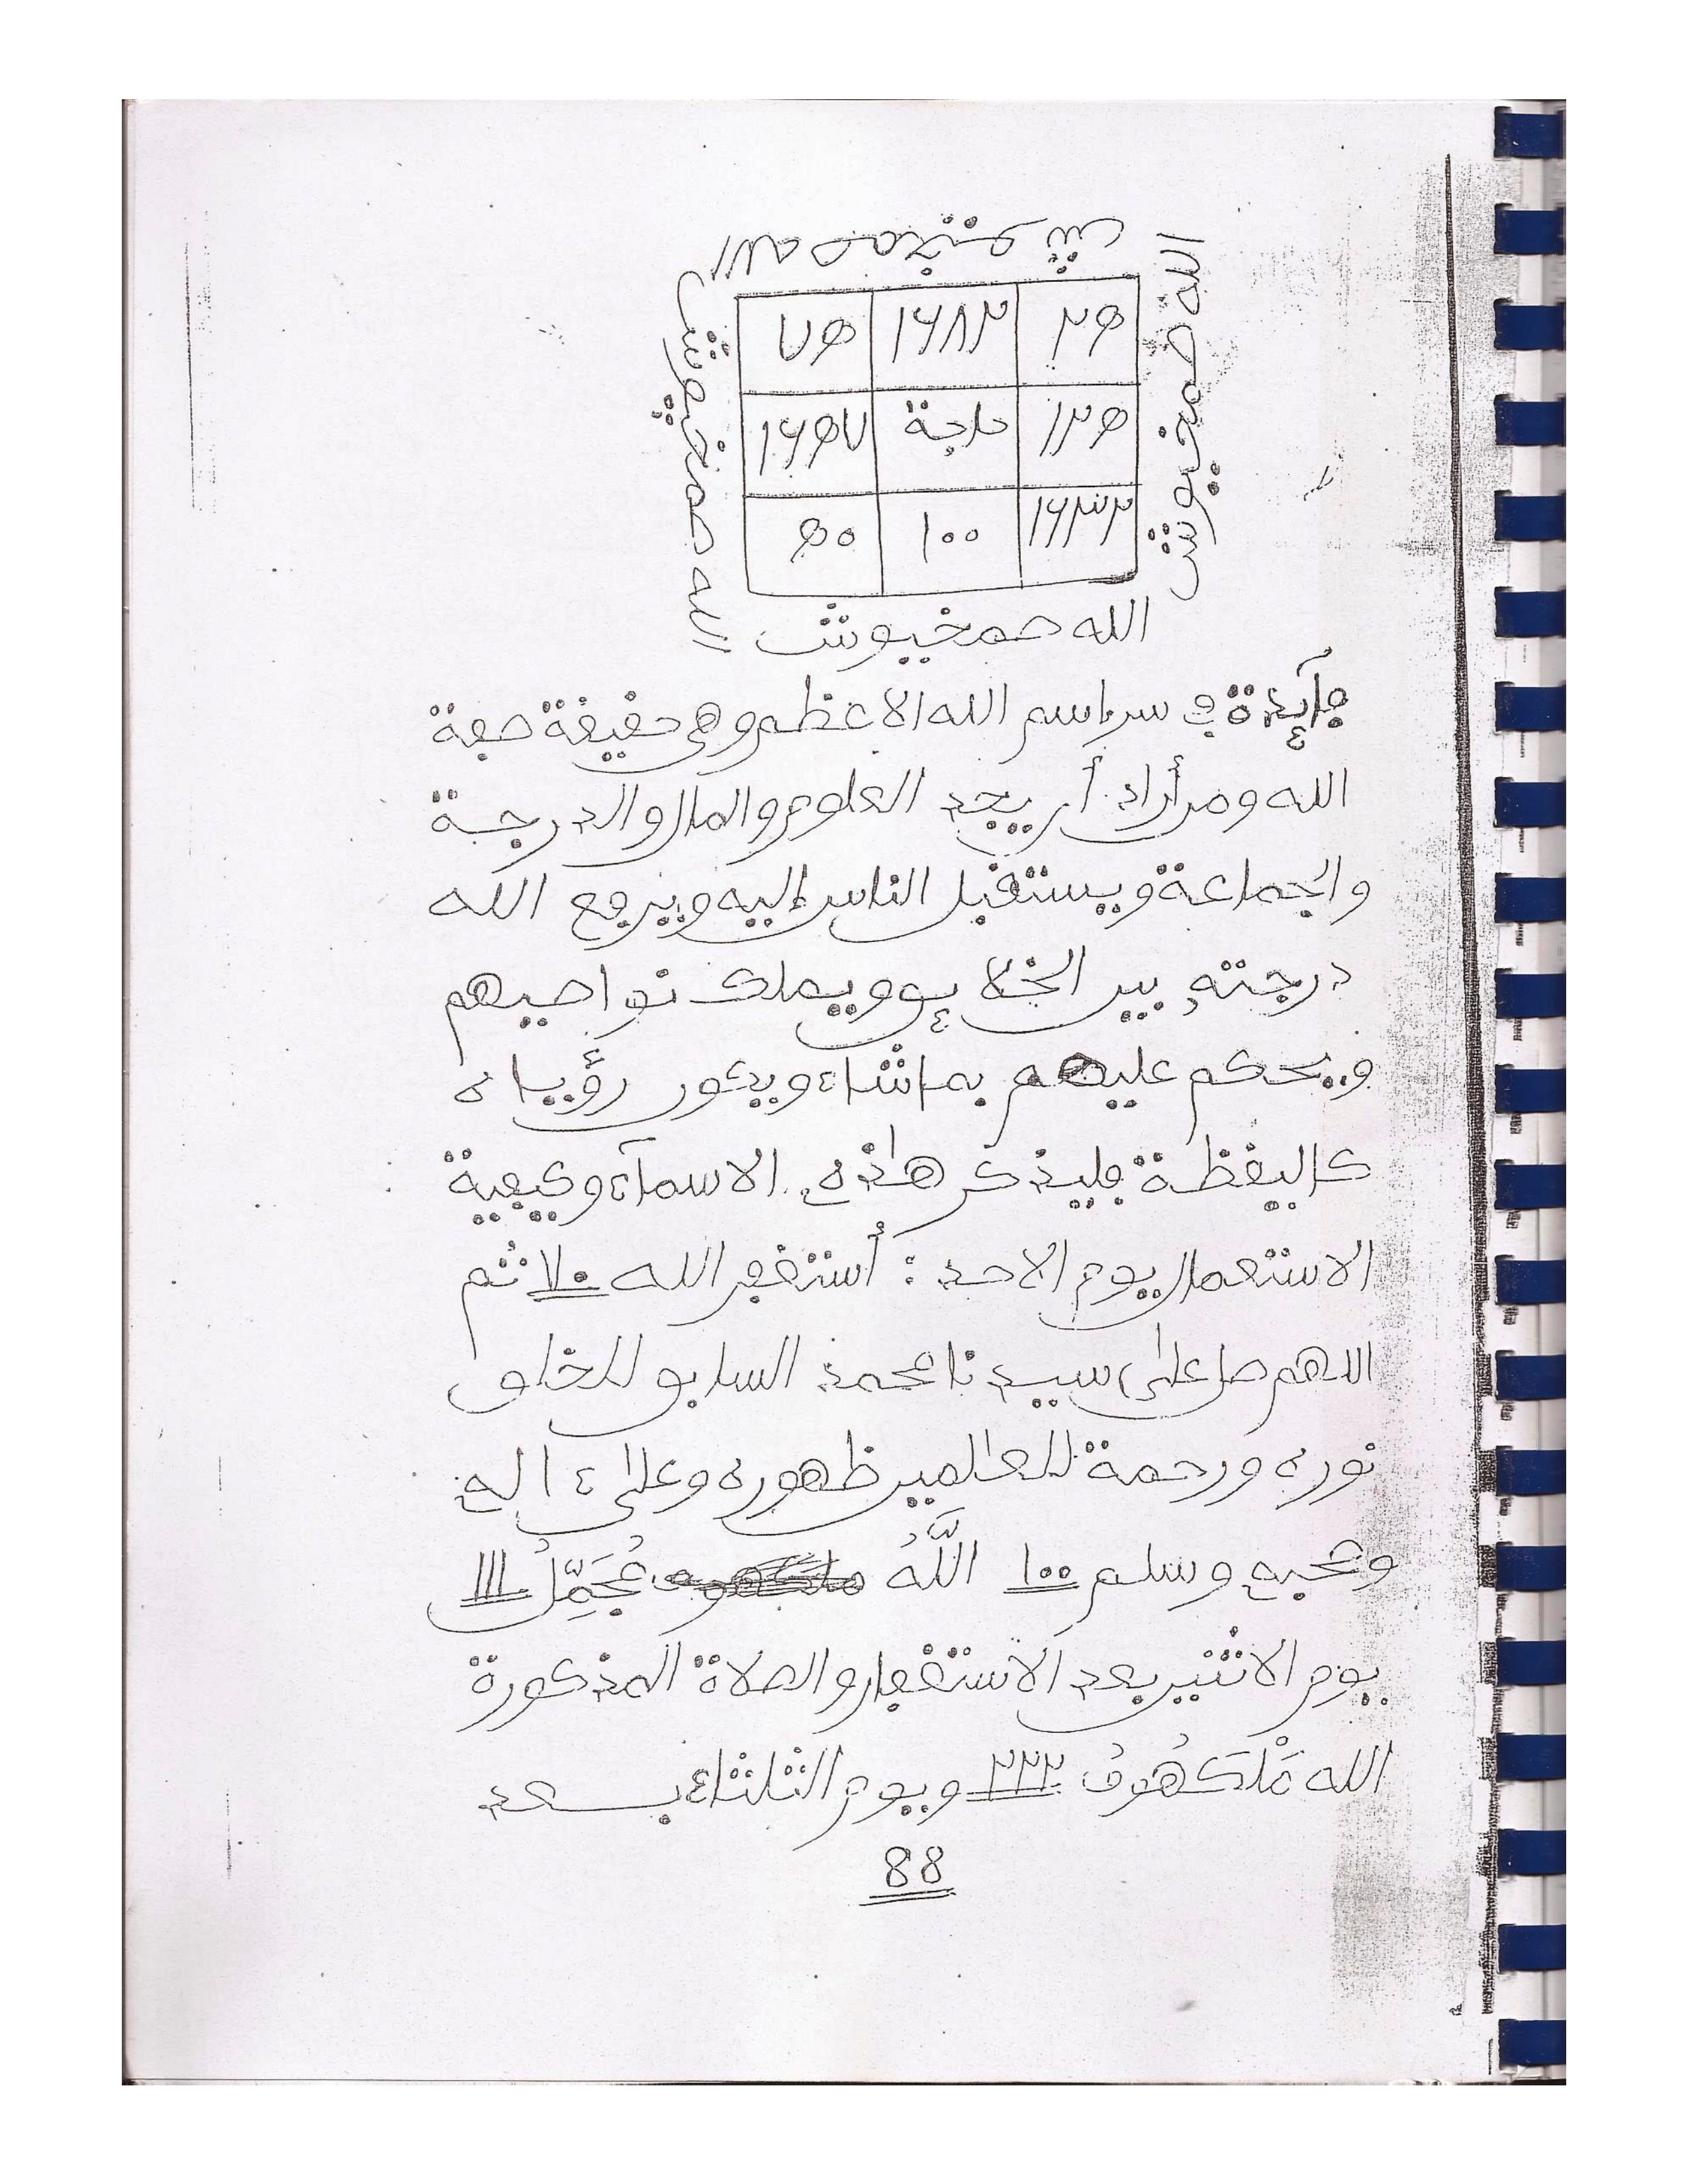 الله حمخيوش
الله حمخيوش
الله حمخيوش
٧٥ ١٦٨٢ ٢٥
١٦٥٧ حاجة ١٢٥
٥٠ ١٠٠ ١٦٣٢
الله حمخيوش
فآئدة في سر اسم الله الاعظم وهي حقيقة صفة
الله ومن أراد أن يجد العلوم والمال والدرجة
والجماعة ويستقبل الناس إليه ويرفع الله
درجته بين الخلائق ويملك نواصيهم
ويحكم عليهم بما شاء ويكون رؤياه
كاليقظة فليذكر هاذه الاسمآء وكيفية
الاستعمال يوم الاحد : أستغفر الله ٧٠ ثم
اللهم صل على سيدنا محمد السابق للخلق
نوره ورحمة للعالمين ظهوره وعلى ءاله
وصحبه وسلم ١٠٠ اللَّهُ مُجَمِّلُ ١١١
يوم الاثنين بعد الاستغفار والصلاة المذكورة
الله مَلْكَهُوفُ ٢٢٢ ويوم الثلثاء بعد
88